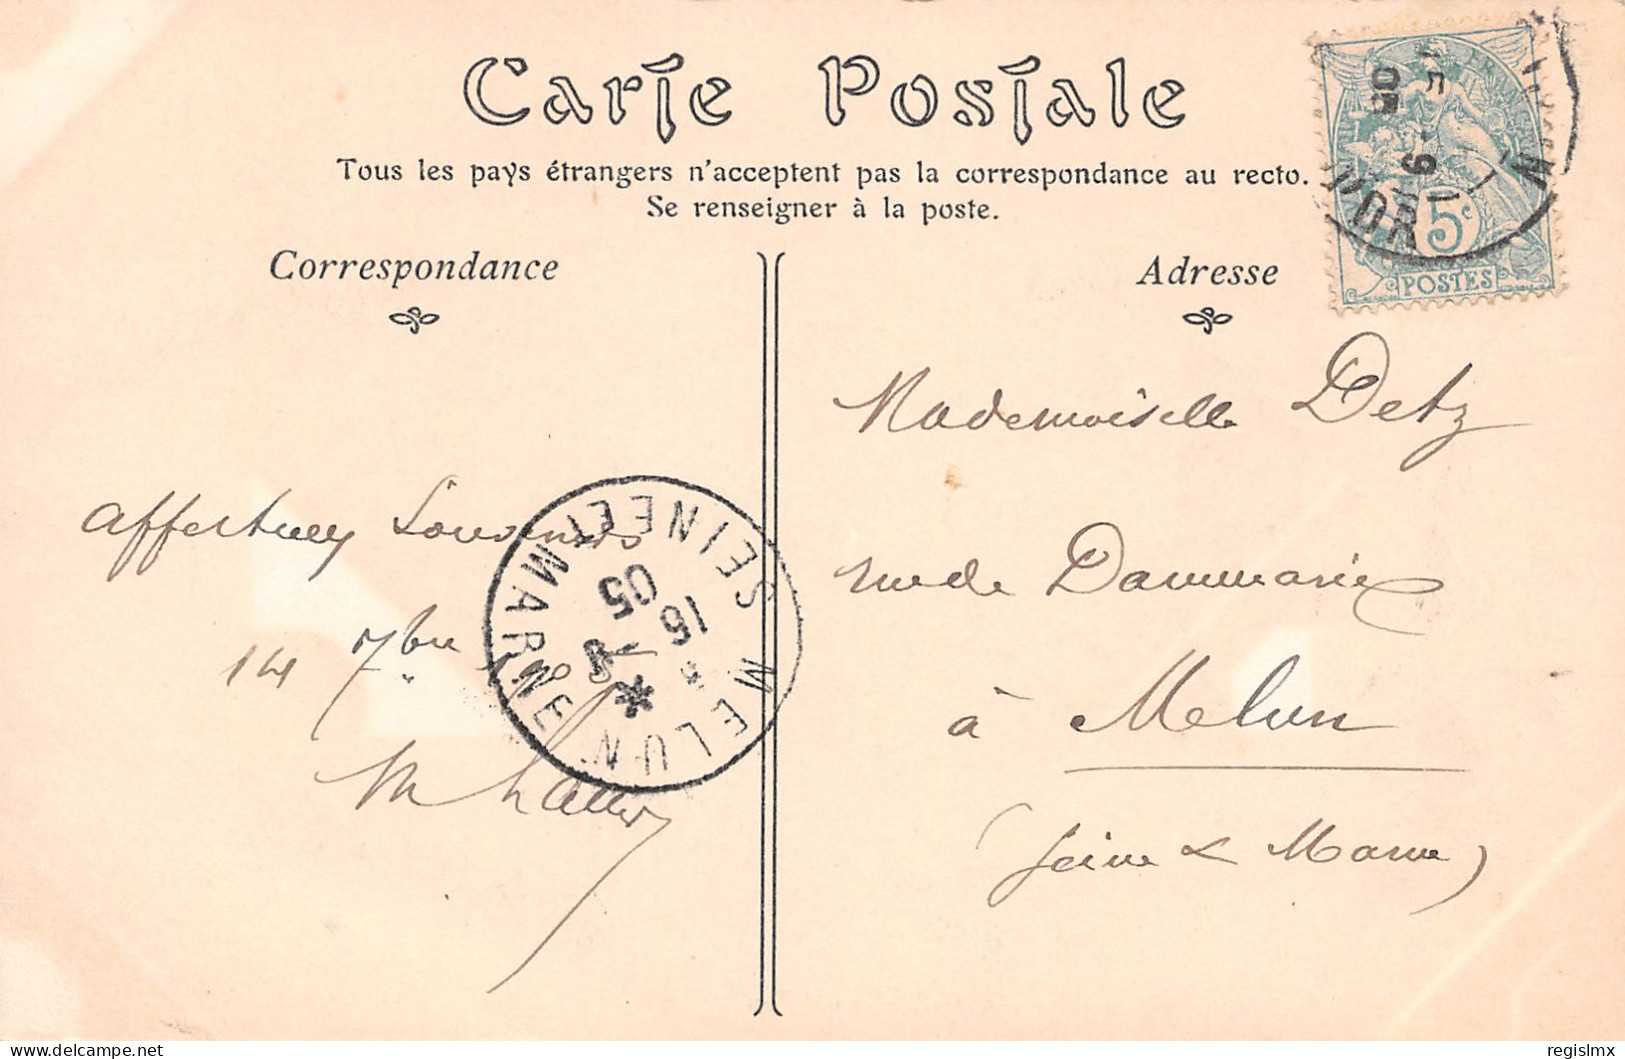 Carte Postale
Tous les pays étrangers n'acceptent pas la correspondance au recto.
Se renseigner à la poste.
Correspondance
Adresse
5c
POSTES
15 -9
05
D'OR
Mademoiselle Detz
rue de Dammarie
à Melun
(Seine & Marne)
Affectueux Souvenirs
14 7bre
MELUN
SEINE ET MARNE
16
05
delcampe.net
regislmx